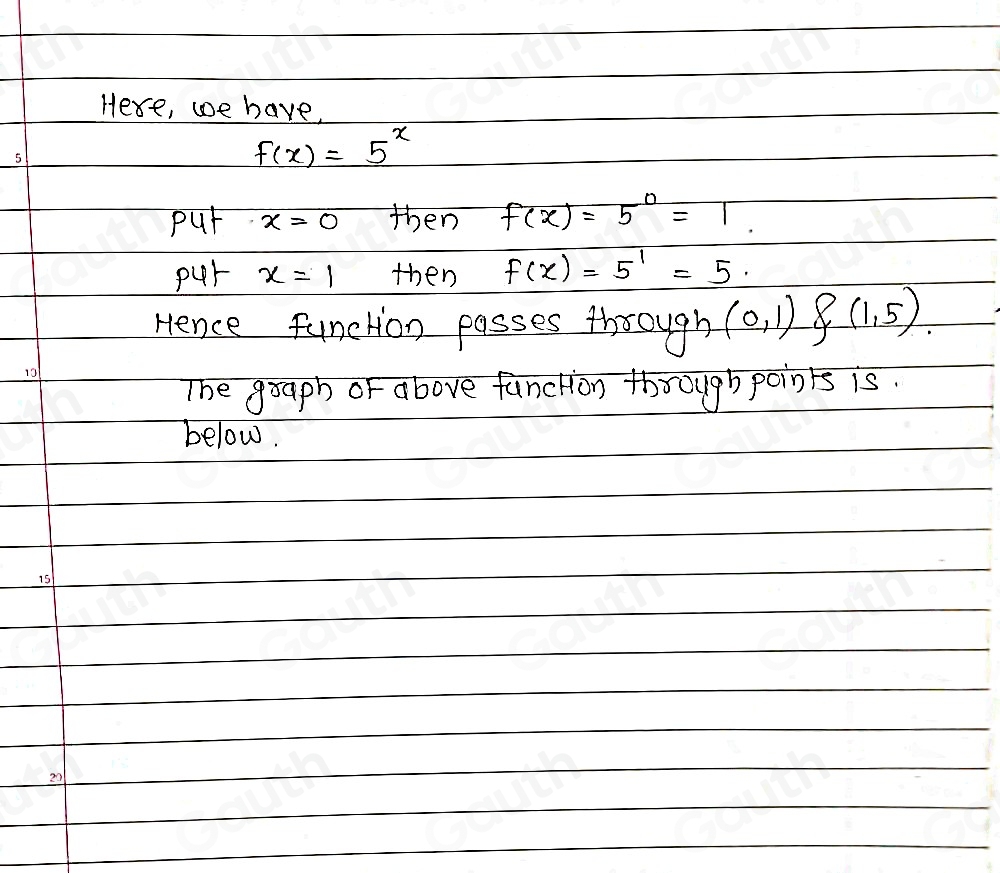 Here, we have,
5 f(x) = 5^x
put x = 0 then f(x) = 5^0 = 1.
put x = 1 then f(x) = 5^1 = 5.
Hence function passes through (0,1) & (1,5).
10 The graph of above function through points is.
below.
15
20
Gauth